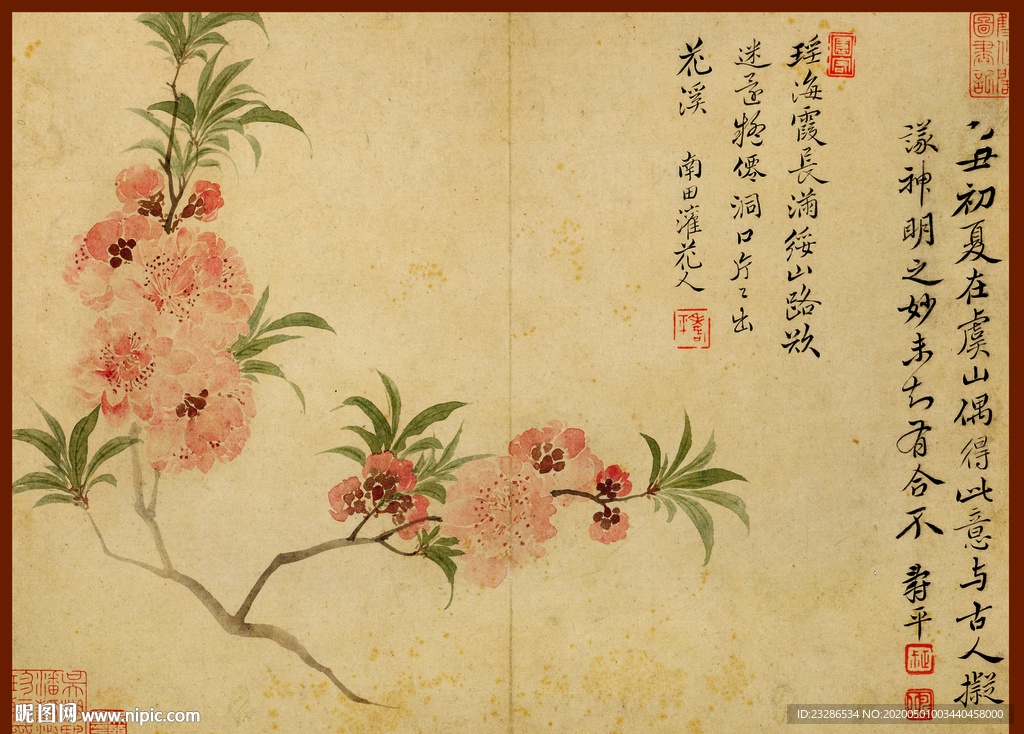 丑初夏在虞山偶得此意与古人擬
議神明之妙未知有合不 壽平
瑶海霞長滿綏山路欲
迷還疑僊洞口片〻出
花溪 南田灌花人
圖書記
昵图网 www.nipic.com
ID:23286534 NO:20200501003440458000